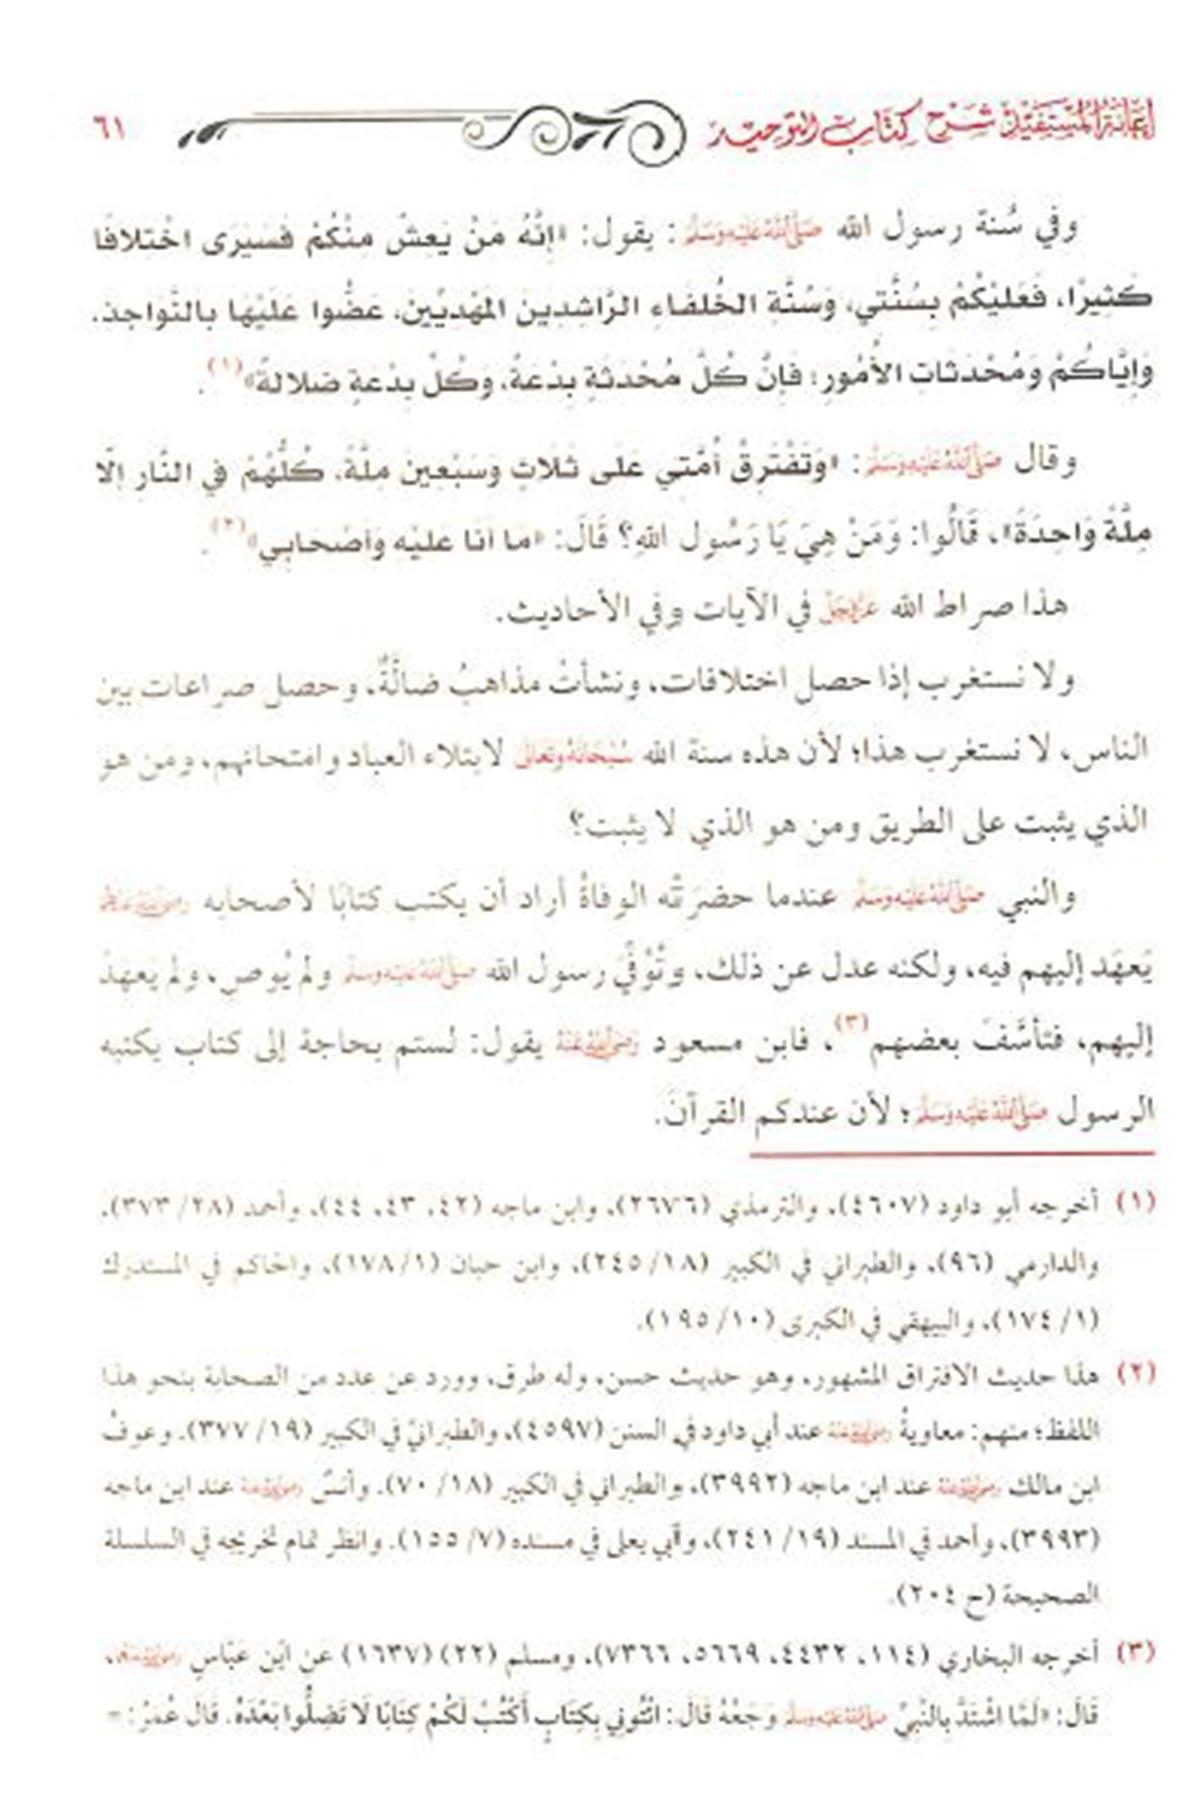 إعانة المستفيد شرح كتاب التوحيد ٦١
وفي سُنة رسول الله صَلَّى اللَّهُ عَلَيْهِ وَسَلَّمَ: يقول: «إِنَّهُ مَنْ يَعِشْ مِنْكُمْ فَسَيَرَى اخْتِلَافًا
كَثِيرًا، فَعَلَيْكُمْ بِسُنَّتِي، وَسُنَّةِ الخُلَفَاءِ الرَّاشِدِينَ المَهْدِيِّينَ، عَضُّوا عَلَيْهَا بِالنَّوَاجِذِ،
وَإِيَّاكُمْ وَمُحْدَثَاتِ الأُمُورِ؛ فَإِنَّ كُلَّ مُحْدَثَةٍ بِدْعَةٌ، وَكُلَّ بِدْعَةٍ ضَلَالَةٌ»(١).
وقال صَلَّى اللَّهُ عَلَيْهِ وَسَلَّمَ: «وَتَفْتَرِقُ أُمَّتِي عَلَى ثَلَاثٍ وَسَبْعِينَ مِلَّةً، كُلُّهُمْ فِي النَّارِ إِلَّا
مِلَّةً وَاحِدَةً»، قَالُوا: وَمَنْ هِيَ يَا رَسُولَ اللهِ؟ قَالَ: «مَا أَنَا عَلَيْهِ وَأَصْحَابِي»(٢).
هذا صراط الله عَزَّوَجَلَّ في الآيات وفي الأحاديث.
ولا نستغرب إذا حصل اختلافات، ونشأتْ مذاهبُ ضالَّةٌ، وحصل صراعات بين
الناس، لا نستغرب هذا؛ لأن هذه سنة الله سُبْحَانَهُ وَتَعَالَى لابتلاء العباد وامتحانهم، ومن هو
الذي يثبت على الطريق ومن هو الذي لا يثبت؟
والنبي صَلَّى اللَّهُ عَلَيْهِ وَسَلَّمَ عندما حضرَتْه الوفاةُ أراد أن يكتب كتابًا لأصحابه رَضِيَ اللَّهُ عَنْهُمْ
يَعهَد إليهم فيه، ولكنه عدل عن ذلك، وتُوُفِّيَ رسول الله صَلَّى اللَّهُ عَلَيْهِ وَسَلَّمَ ولم يُوصِ، ولم يَعهَدْ
إليهم، فتأسَّفَ بعضهم(٣)، فابن مسعود رَضِيَ اللَّهُ عَنْهُ يقول: لستم بحاجة إلى كتاب يكتبه
الرسول صَلَّى اللَّهُ عَلَيْهِ وَسَلَّمَ؛ لأن عندكم القرآنَ.
(١) أخرجه أبو داود (٤٦٠٧)، والترمذي (٢٦٧٦)، وابن ماجه (٤٢، ٤٣، ٤٤)، وأحمد (٢٨/ ٣٧٣)،
والدارمي (٩٦)، والطبراني في الكبير (١٨/ ٢٤٥)، وابن حبان (١/ ١٧٨)، والحاكم في المستدرك
(١/ ١٧٤)، والبيهقي في الكبرى (١٠/ ١٩٥).
(٢) هذا حديث الافتراق المشهور، وهو حديث حسن، وله طرق، وورد عن عدد من الصحابة بنحو هذا
اللفظ؛ منهم: معاويةُ رَضِيَ اللَّهُ عَنْهُ عند أبي داود في السنن (٤٥٩٧)، والطبرانيِّ في الكبير (١٩/ ٣٧٧). وعوفُ
ابن مالك رَضِيَ اللَّهُ عَنْهُ عند ابن ماجه (٣٩٩٢)، والطبراني في الكبير (١٨/ ٧٠). وأنسٌ رَضِيَ اللَّهُ عَنْهُ عند ابن ماجه
(٣٩٩٣)، وأحمد في المسند (١٩/ ٢٤١)، وأبي يعلى في مسنده (٧/ ١٥٥). وانظر تمام تخريجه في السلسلة
الصحيحة (ح ٢٠٤).
(٣) أخرجه البخاري (١١٤، ٤٤٣٢، ٥٦٦٩، ٧٣٦٦)، ومسلم (٢٢) (١٦٣٧) عن ابْنِ عَبَّاسٍ رَضِيَ اللَّهُ عَنْهُمَا،
قَالَ: «لَمَّا اشْتَدَّ بِالنَّبِيِّ صَلَّى اللَّهُ عَلَيْهِ وَسَلَّمَ وَجَعُهُ قَالَ: ائْتُونِي بِكِتَابٍ أَكْتُبْ لَكُمْ كِتَابًا لَا تَضِلُّوا بَعْدَهُ. قَالَ عُمَرُ: =